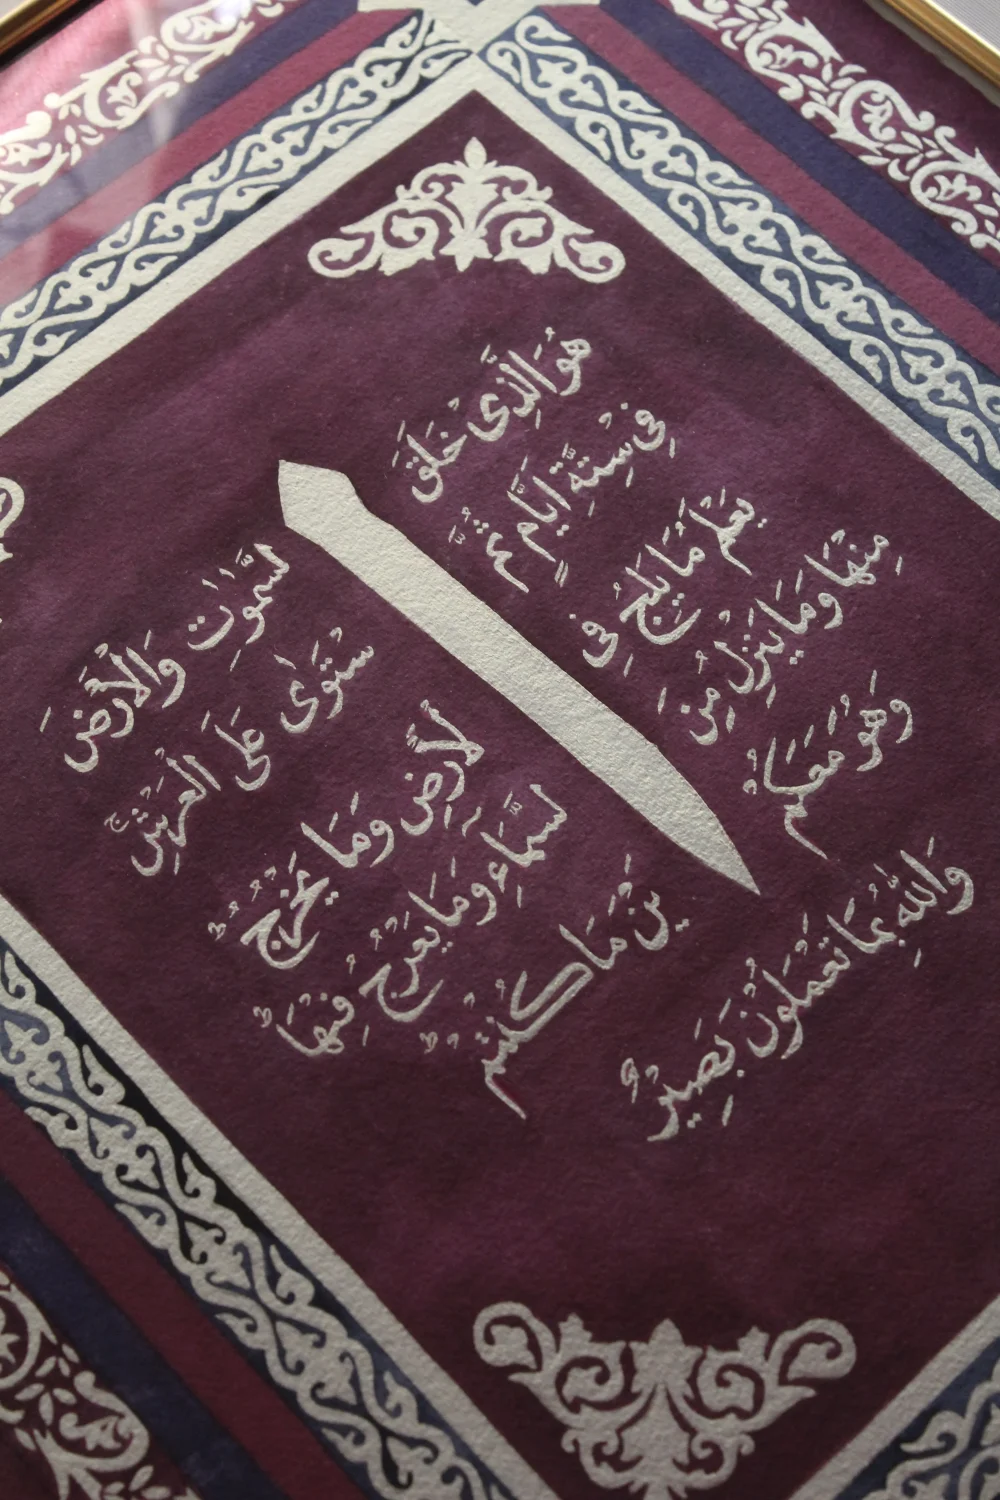 هُوَ الَّذِى خَلَقَ السَّمٰوٰتِ وَالْاَرْضَ
فِى سِتَّةِ اَيَّامٍ ثُمَّ اسْتَوٰى عَلَى الْعَرْشِۜ
يَعْلَمُ مَا يَلِجُ فِى الْاَرْضِ وَمَا يَخْرُجُ
مِنْهَا وَمَا يَنْزِلُ مِنَ السَّمَٓاءِ وَمَا يَعْرُجُ فِيهَاۜ
وَهُوَ مَعَكُمْ اَيْنَ مَا كُنْتُمْۜ
وَاللّٰهُ بِمَا تَعْمَلُونَ بَصِيرٌ